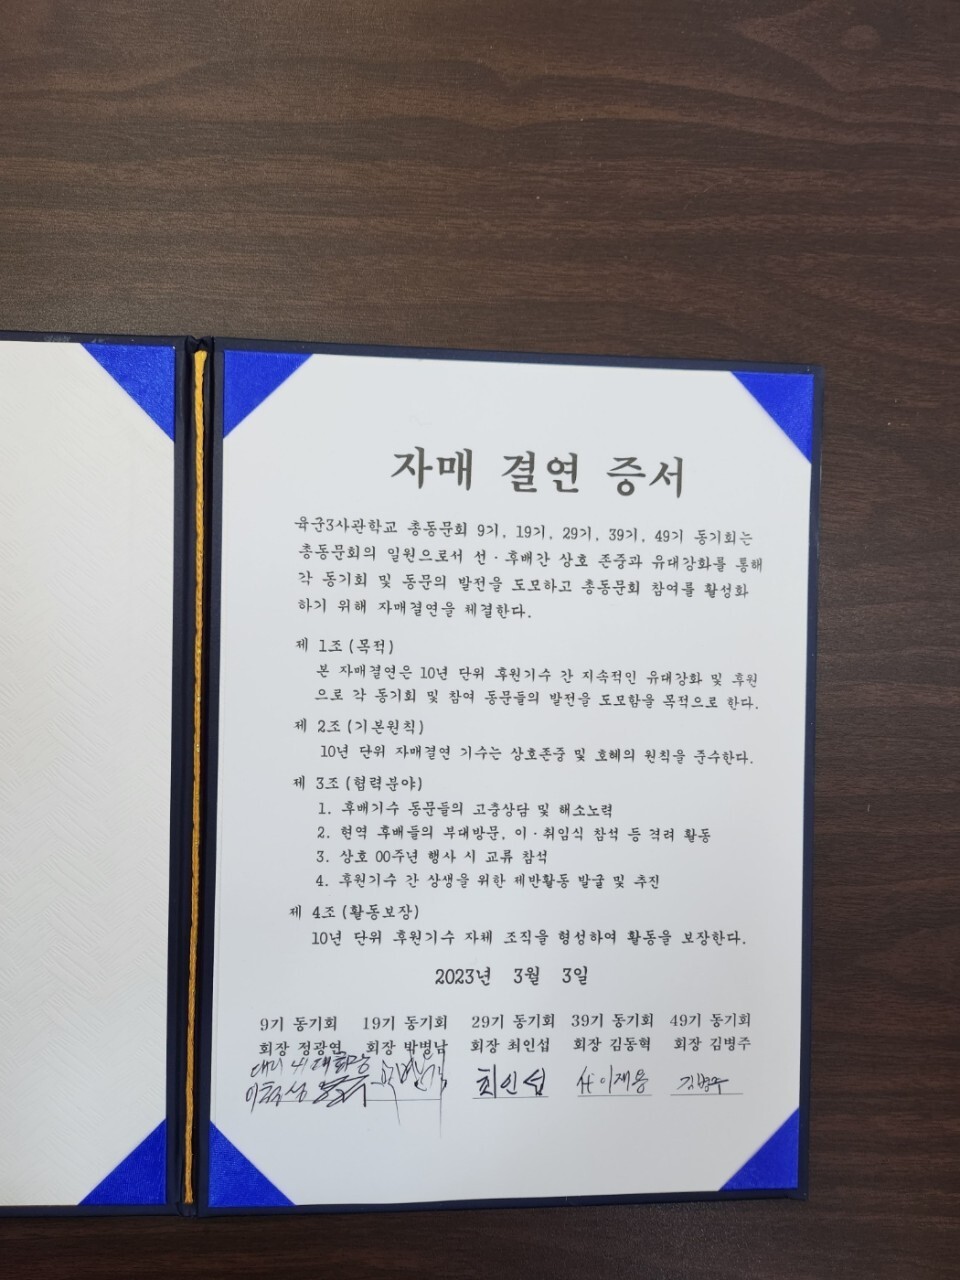 자매 결연 증서
육군3사관학교 총동문회 9기, 19기, 29기, 39기, 49기 동기회는
총동문회의 일원으로서 선·후배간 상호 존중과 유대강화를 통해
각 동기회 및 동문의 발전을 도모하고 총동문회 참여를 활성화
하기 위해 자매결연을 체결한다.
제 1조(목적)
본 자매결연은 10년 단위 후원기수 간 지속적인 유대강화 및 후원
으로 각 동기회 및 참여 동문들의 발전을 도모함을 목적으로 한다.
제 2조(기본원칙)
10년 단위 자매결연 기수는 상호존중 및 호혜의 원칙을 준수한다.
제 3조(협력분야)
1. 후배기수 동문들의 고충상담 및 해소노력
2. 현역 후배들의 부대방문, 이·취임식 참석 등 격려 활동
3. 상호 00주년 행사 시 교류 참석
4. 후원기수 간 상생을 위한 제반활동 발굴 및 추진
제 4조(활동보장)
10년 단위 후원기수 자체 조직을 형성하여 활동을 보장한다.
2023년 3월 3일
9기 동기회 19기 동기회 29기 동기회 39기 동기회 49기 동기회
회장 정광연 회장 박별남 회장 최인섭 회장 김동혁 회장 김병주
최인섭 이재용 김병주